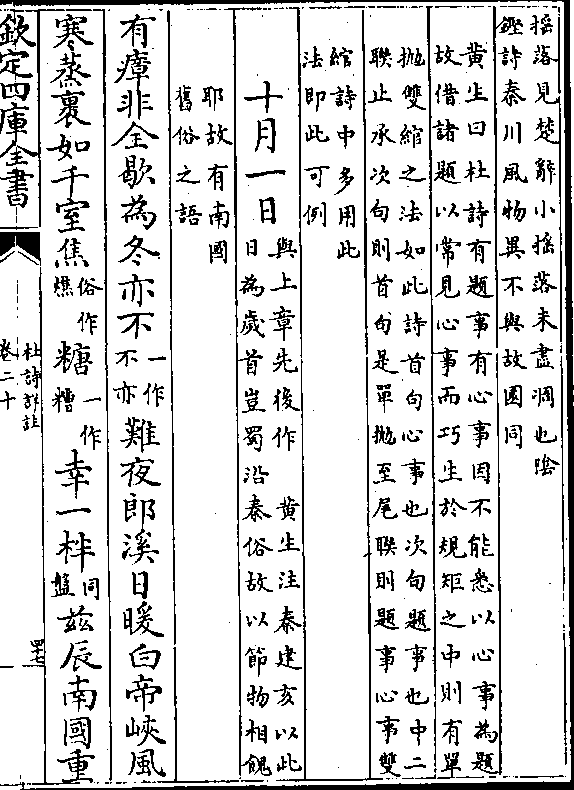 搖落見楚辭小搖落未盡凋也陰
鏗詩秦川風物異不與故園同
黄生曰杜詩有題事有心事因不能悉以心事為題
故借諸題以常見心事而巧生於規矩之中則有單
拋雙綰之法如此詩首句心事也次句題事也中二
聯止承次句則首句是單拋至尾聯則題事心事雙
綰詩中多用此
法即此可例
十月一日
與上章先後作　黄生注秦建亥以此
日為歲首豈蜀沿秦俗故以節物相餽
耶故有南國
舊俗之語
有瘴非全歇為冬亦不
一作
不亦
難夜郎溪日暖白帝峽風
寒蒸裹如千室焦
俗作
燋
糖
一作
糟
幸一柈
同
盤
兹辰南國重
欽定四庫全書
杜詩詳註
卷二十
罕七